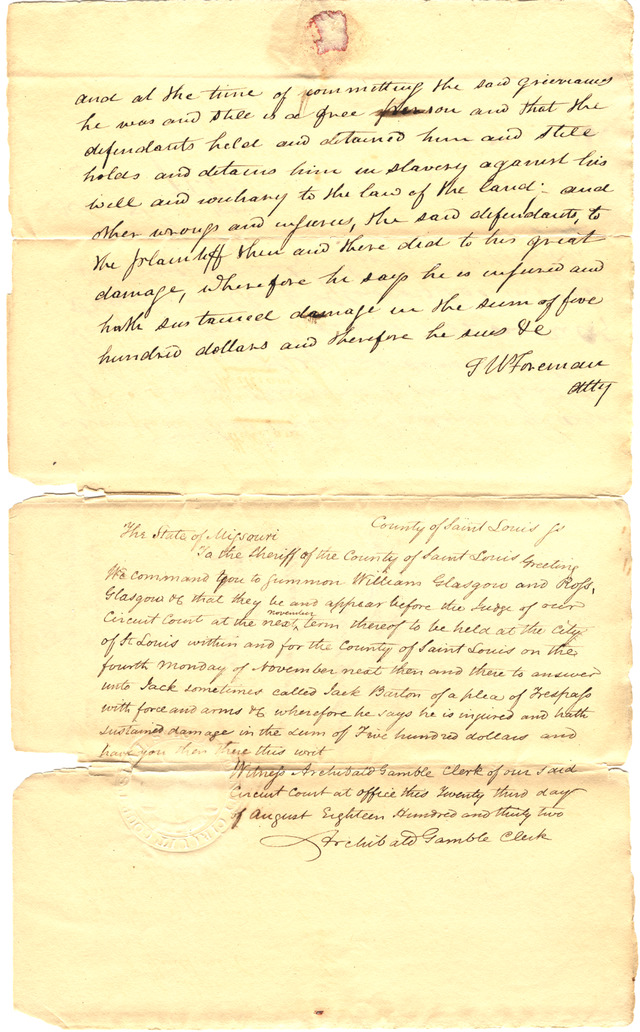 and at the time of committing the said grievances
he was and still is a free person and that the
defendants held and detained him and still
holds and detains him in slavery against his
will and contrary to the law of the land - and
other wrongs and injuries, the said defendants, to
the plaintiff then and there did to his great
damage, wherefore he says he is injured and
hath sustained damage in the sum of five
hundred dollars and therefore he sues &c
J W Foreman
Atty
County of Saint Louis ss
The State of Missouri
To the Sheriff of the County of Saint Louis Greeting
We command you to summon William Glasgow and Ross,
Glasgow &c that they be and appear before the Judge of our
november
Circuit Court at the next term thereof to be held at the City
of St Louis within and for the County of Saint Louis on the
fourth Monday of November next then and there to answer
unto Jack sometimes called Jack Barton of a plea of Trespass
with force and arms &c wherefore he says he is injured and hath
Sustained damage in the sum of Five hundred dollars and
have you then there this writ
Witness Archibald Gamble Clerk of our said
Circuit Court at office this Twenty third day
of August Eighteen Hundred and thirty two
Archibald Gamble Clerk